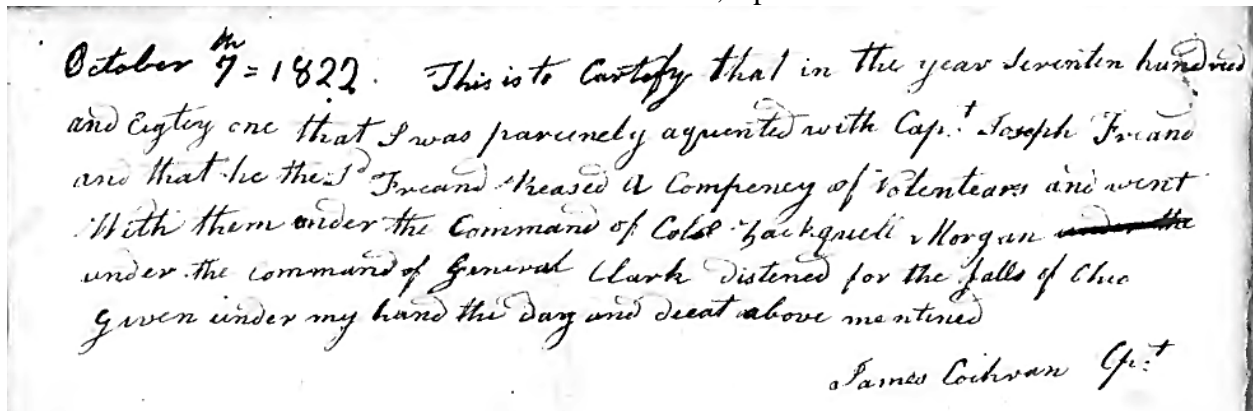 October 7th = 1822. This is to Cartefy that in the year Seventen hundred
and Eigtey one that I was parcunely aquented with Capt. Joseph Freand
and that he the Sd Freand Reased a Compeney of Volentears and went
With them under the Command of Colo Zackquell Morgan under the
under the command of General Clark distened for the falls of Ohio
Given under my hand the Day and deeat above mentined
James Cochran Cpt